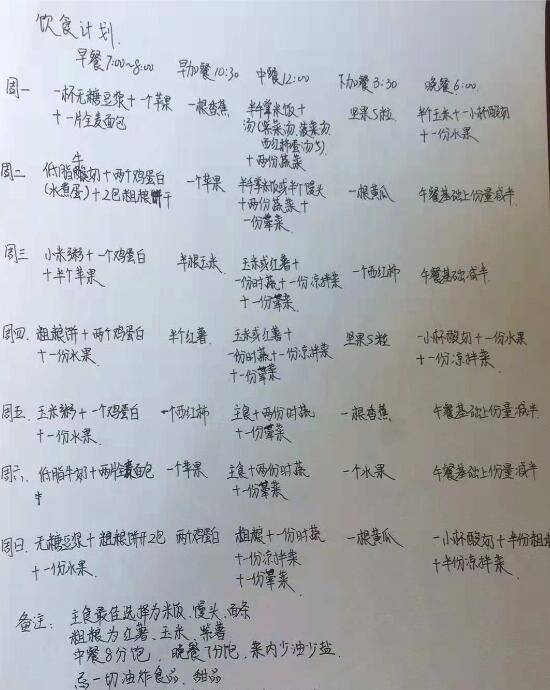 饮食计划.
早餐7:00~8:00 早加餐10:30 中餐12:00 下加餐3:30 晚餐6:00.
周一 一杯无糖豆浆+一个苹果 一根香蕉 半个掌米饭+ 坚果5粒 半个玉米+一小杯酸奶
+一片全麦面包 汤(紫菜汤.菠菜汤 +一份水果
西红柿蛋汤等)
+两份蔬菜
周二. 低脂牛奶+两个鸡蛋白 一个苹果 半掌米饭或半个馒头 一根黄瓜 午餐基础上份量减半
(水煮蛋)+2包粗粮饼干 +两份蔬菜+
一份荤菜
周三 小米粥+一个鸡蛋白 半根玉米. 玉米或红薯+ 一个西红柿 午餐基础减半
+半个苹果 一份时蔬+一份凉拌菜
+一份荤菜
周四. 粗粮饼+两个鸡蛋白 半个红薯. 玉米或红薯+ 坚果5粒 一小杯酸奶+一份水果
+一份水果 一份时蔬+一份凉拌菜 +一份凉拌菜
+一份荤菜
周五. 玉米粥+一个鸡蛋白 一个西红柿 主食+两份时蔬 一根香蕉 午餐基础上份量减半
+一份水果. +一份荤菜
周六、低脂牛奶+两片全麦面包 一个苹果 主食+两份时蔬 一个水果 午餐基础上份量减半
+一份荤菜
周日. 无糖豆浆+粗粮饼干2包 两个鸡蛋白 粗粮+一份时蔬 一根黄瓜 一小杯酸奶+半份粗粮
+一份水果. +一份凉拌菜 +半份凉拌菜.
+一份荤菜
备注: 主食最佳选择为米饭、馒头、面条
粗粮为红薯、玉米、紫薯
中餐8分饱, 晚餐7分饱. 菜内少油少盐.
忌一切油炸食品、甜品